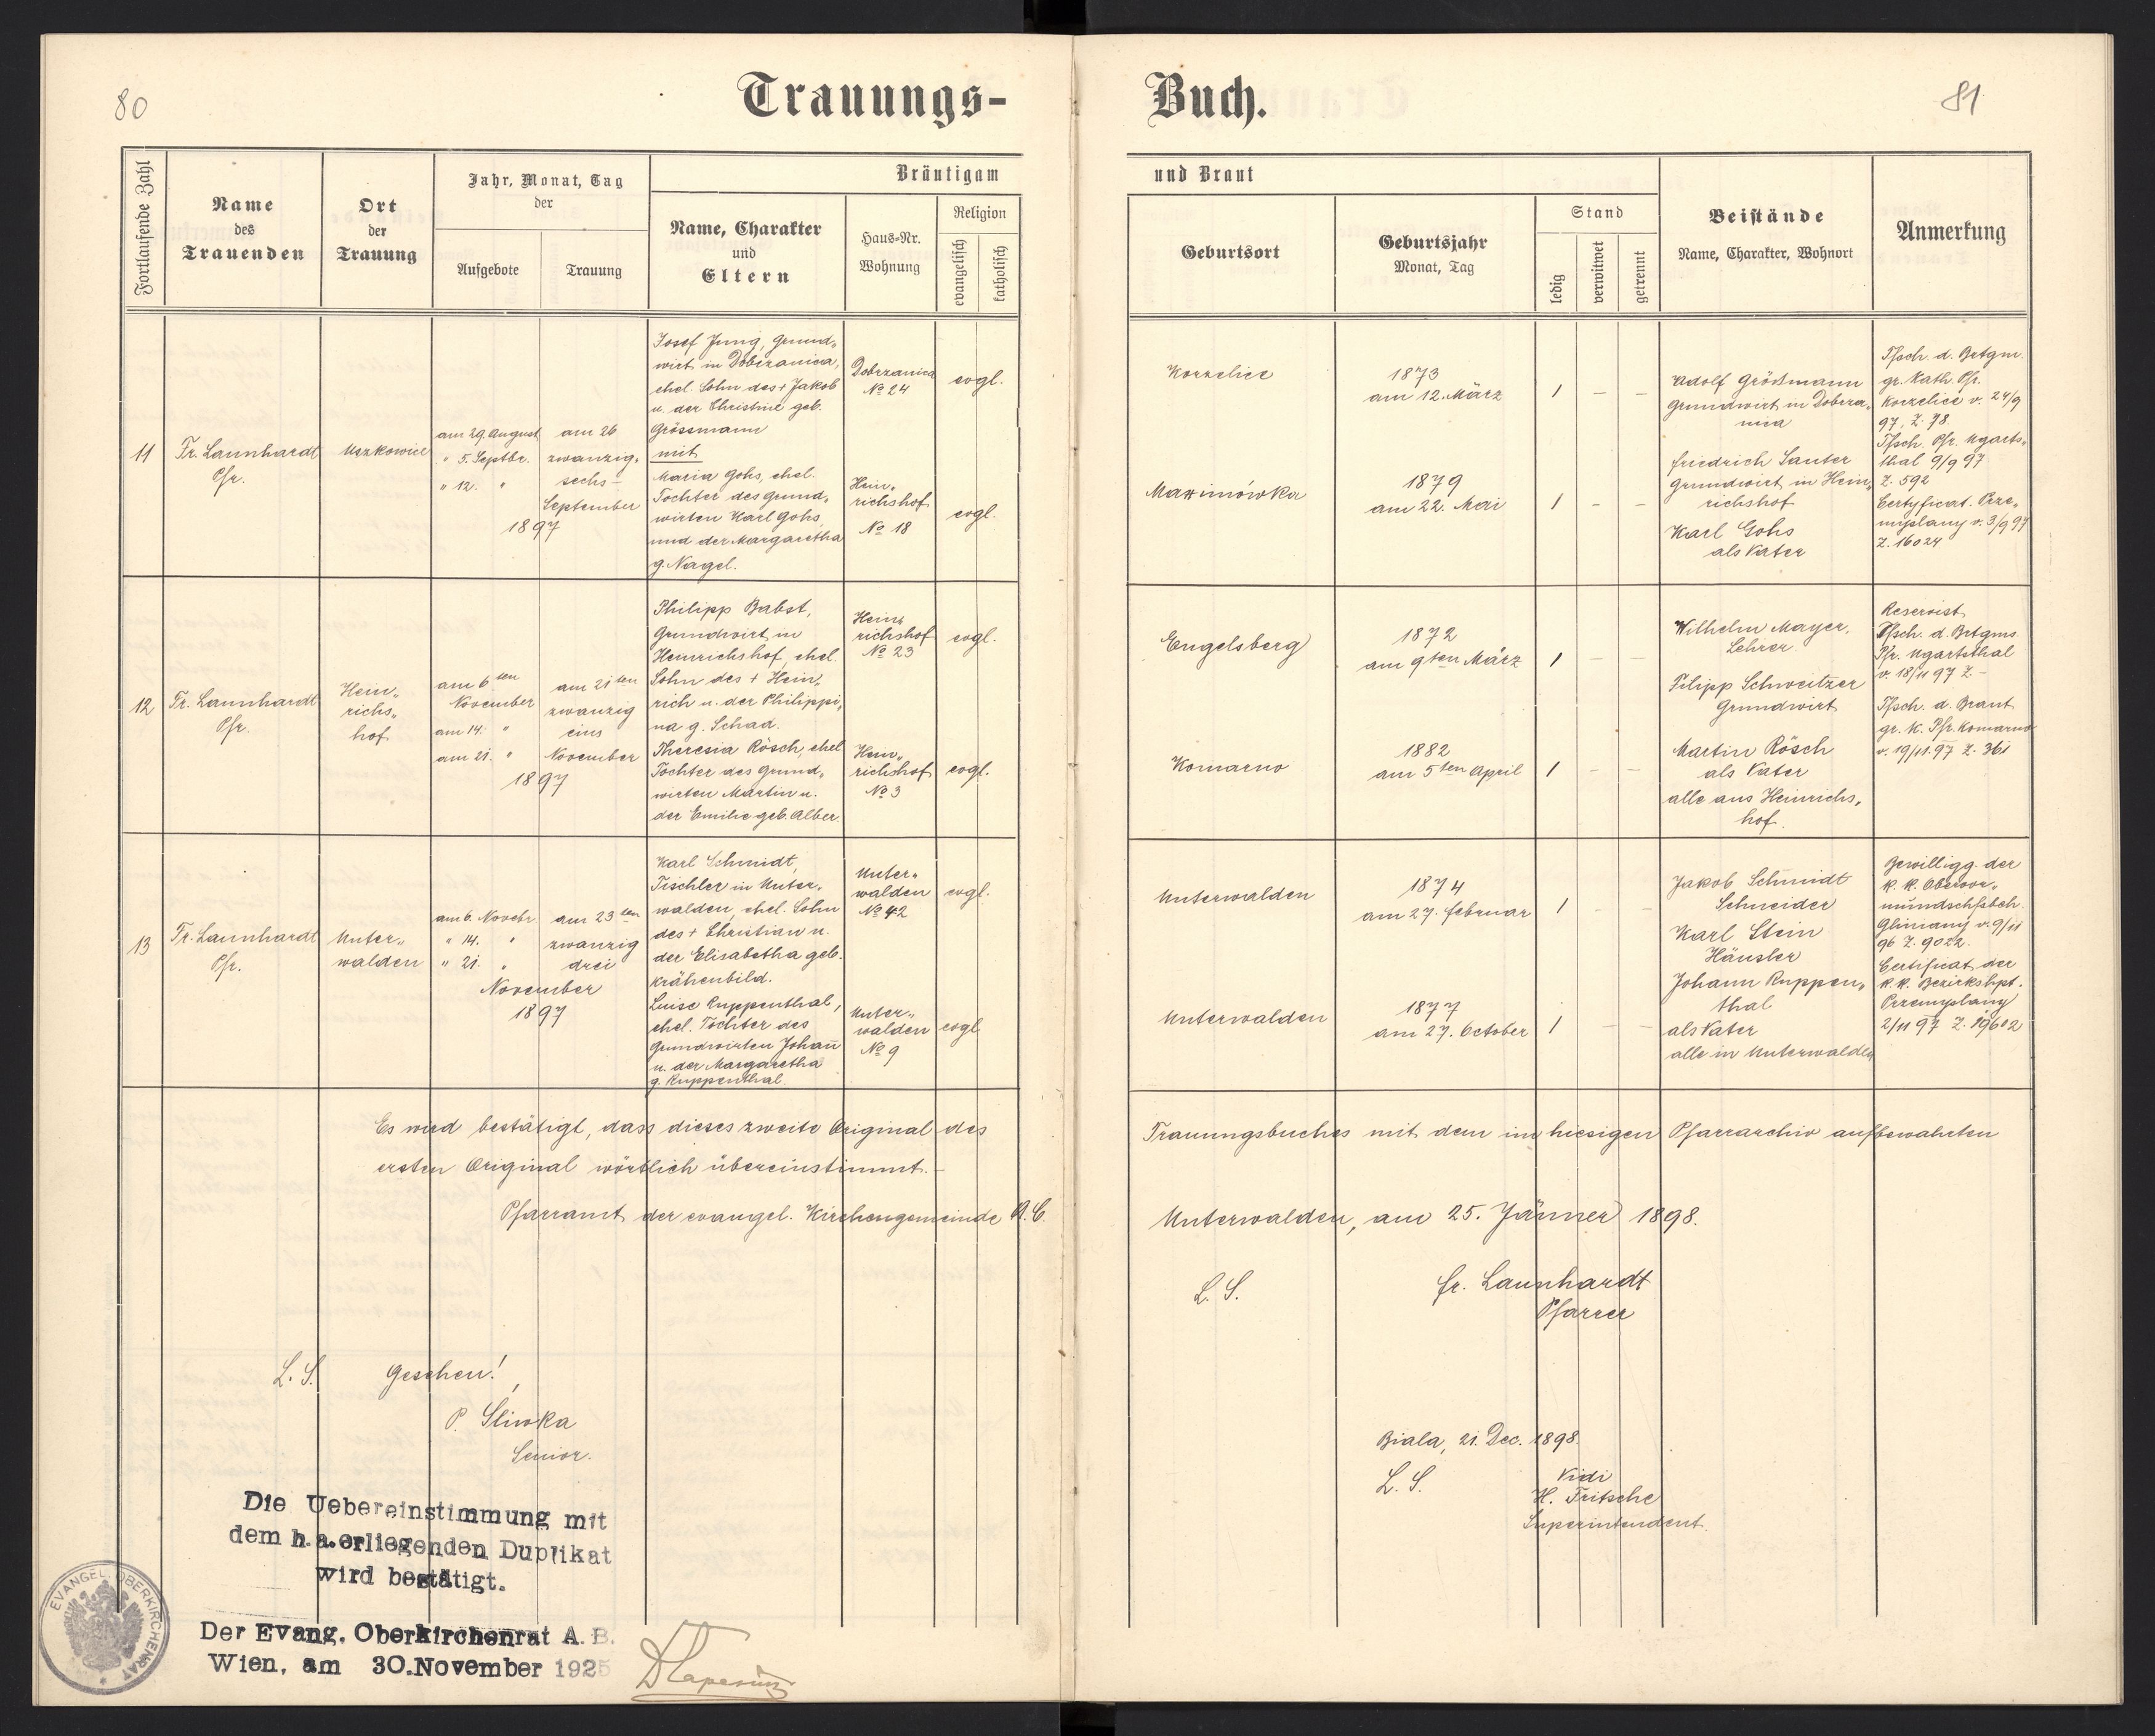 80
Trauungs-
Buch.
81
Fortlaufende Zahl
Name
des
Trauenden
Ort
der
Trauung
Jahr, Monat, Tag
der
Aufgebote
Trauung
Bräutigam
Name, Charakter
und
Eltern
Haus-Nr.
Wohnung
Religion
evangelisch
katholisch
und Braut
Geburtsort
Geburtsjahr
Monat, Tag
Stand
ledig
verwitwet
getrennt
Beistände
Name, Charakter, Wohnort
Anmerkung
11
Fr. Launhardt
Pfr.
Uszkowice
am 29. August
" 5. Septbr.
" 12. "
am 26
zwanzig-
sechs-
September
1897
Josef Jung, Grund-
wirt in Dobrzanica,
ehel. Sohn des + Jakob
u. der Christine geb.
Grössmann
mit
Maria Gohs, ehel.
Tochter des Grund-
wirten Karl Gohs
und der Margaretha
g. Nagel.
Dobrzanica
No 24
Hein-
richshof
No 18
evgl.
evgl.
Korzelice
Maximówka
1873
am 12. März
1879
am 22. Mai
1 – –
1 – –
Adolf Größmann
Grundwirt in Dobrza-
nica
Friedrich Sauter
Grundwirt in Hein-
richshof
Karl Gohs
als Vater
Tfsch. d. Brtgm.
gr. Kath. Pfr.
Korzelice v. 24/9
97, Z. 78.
Tfsch. Pfr. Ugarts-
thal 9/9 97
Z. 592
Certyficat. Prze-
myslany v. 3/9 97
Z. 16024
12
Fr. Launhardt
Pfr.
Hein-
richs-
hof
am 6ten
November
am 14. "
am 21. "
am 21ten
zwanzig
eins
November
1897
Philipp Babst,
Grundwirt in
Heinrichshof, ehel.
Sohn des + Hein-
rich u. der Philippi-
na g. Schad.
Theresia Rösch, ehel
Tochter des Grund-
wirten Martin u.
der Emilie geb. Alber
Hein-
richshof
No 23
Hein-
richshof
No 3
evgl.
evgl.
Engelsberg
Komarno
1872
am 9ten März
1882
am 5ten April
1 – –
1 – –
Wilhelm Mayer,
Lehrer
Filipp Schweitzer
Grundwirt
Martin Rösch
als Vater
alle aus Heinrichs-
hof.
Reservist
Tfsch. d. Brtgms.
Pfr. Ugartsthal
v. 18/11 97 Z. –
Tfsch. d. Braut
gr. K. Pfr. Komarno
v. 19/11.97 Z. 361
13
Fr. Launhardt
Pfr.
Unter-
walden
am 6. Novbr.
" 14. "
" 21. "
am 23ten
zwanzig
drei
November
1897
Karl Schmidt,
Tischler in Unter-
walden, ehel. Sohn
des + Christian u.
der Elisabetha geb.
Krähenbild.
Luise Ruppenthal,
ehel. Tochter des
Grundwirten Johann
u. der Margaretha
g. Ruppenthal.
Unter-
walden
No 42
Unter-
walden
No 9
evgl.
evgl
Unterwalden
Unterwalden
1874
am 27. Februar
1877
am 27. October
1 – –
1 – –
Jakob Schmidt
Schneider
Karl Stein
Häusler
Johann Ruppen-
thal
als Vater
alle in Unterwalden
Bewilligg. der
k. k. Obervor-
mundschfsbeh.
Gliniany v. 9/11
96 Z. 9022.
Certificat der
k. k. Bezirkshpt.
Przemyslany
2/11 97 Z. 19602
Es wird bestätigt, dass dieses zweite Original des
Trauungsbuches mit dem im hiesigen Pfarrarchiv aufbewahrten
ersten Original wörtlich übereinstimmt.–
Pfarramt der evangel. Kirchengemeinde A. C.
Unterwalden, am 25. Jänner 1898.
L. S.
Fr. Launhardt
Pfarrer
L. S.
Gesehen!
P. Sliwka
Senior.
Biala, 21. Dec. 1898.
L. S.
Vidi
H. Fritsche
Superintendent.
Die Uebereinstimmung mit
dem h.a.erliegenden Duplikat
wird bestätigt.
Der Evang. Oberkirchenrat A. B.
Wien, am 30.November 1925
EVANGEL. OBERKIRCHENRAT